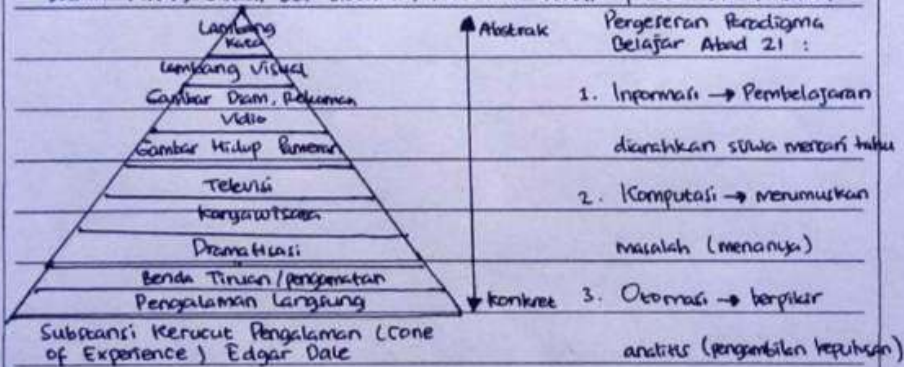 Lambang
Kata
Lambang Visual
Gambar Diam, Rekaman
Vidio
Gambar Hidup Pameran
Televisi
Karyawisata
Dramatisasi
Benda Tiruan/pengamatan
Pengalaman Langsung
Abstrak
konkret
Substansi Kerucut Pengalaman (Cone
of Experience) Edgar Dale
Pergeseran Paradigma
Belajar Abad 21 :
1. Inpormasi → Pembelajaran
diarahkan siswa mencari tahu
2. Komputasi → merumuskan
masalah (menanya)
3. Otomasi → berpikir
analitis (pengambilan keputusan)